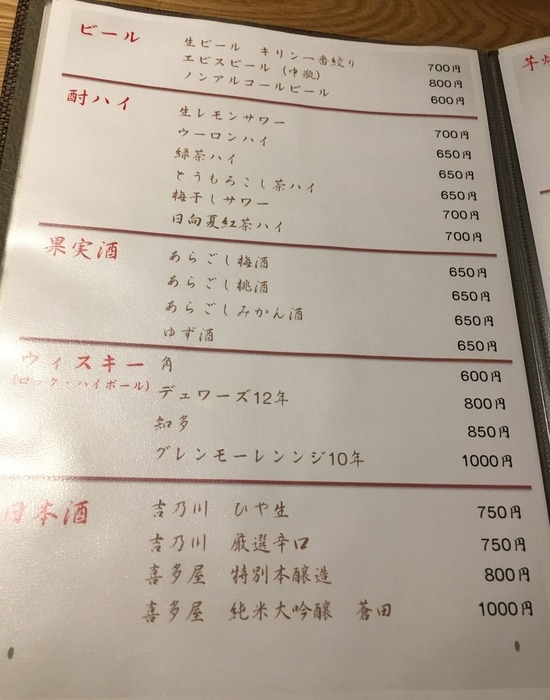 ビール
生ビール キリン一番絞り 700円
エビスビール (中瓶) 800円
ノンアルコールビール 600円
酎ハイ
生レモンサワー 700円
ウーロンハイ 650円
緑茶ハイ 650円
とうもろこし茶ハイ 650円
梅干しサワー 700円
日向夏紅茶ハイ 700円
果実酒
あらごし梅酒 650円
あらごし桃酒 650円
あらごしみかん酒 650円
ゆず酒 650円
ウィスキー
(ロック・ハイボール)
角 600円
デュワーズ12年 800円
知多 850円
グレンモーレンンジ10年 1000円
日本酒
吉乃川 ひや生 750円
吉乃川 厳選辛口 750円
喜多屋 特別本醸造 800円
喜多屋 純米大吟醸 蒼田 1000円